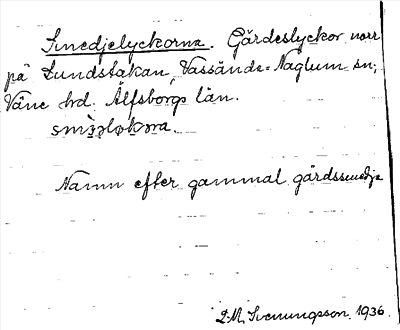 Smedjelyckorna. Gärdeslyckor norr
på Lundstakan, Vassända-Naglum sn,
Väne hd. Älfsborgs län.
Namn efter gammal gårdssmedja
D.M. Svenungsson. 1936.